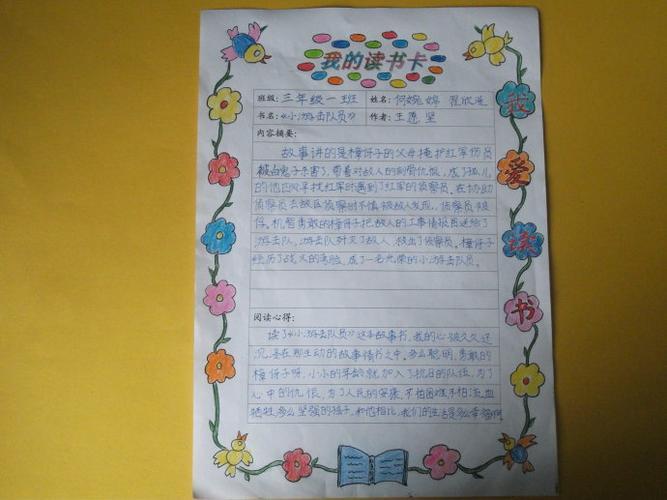 我的读书卡
班级: 三年级一班 姓名: 何婉婷 程欣
书名: 《小游击队员》 作者: 王愿坚
内容摘要:
故事讲的是樟伢子的父母掩护红军伤员
被白鬼子杀害了,带着对敌人的刻骨仇恨,成了孤儿
的他在寻找红军时遇到了红军的侦察员,在协助
侦察员去敌区侦察时不慎被敌人发现,侦察员被
俘。机智勇敢的樟伢子把敌人的工事情报员送给了
游击队,游击队歼灭了敌人,救出了侦察员。樟伢子
经历了战火的考验,成了一名光荣的小游击队员。
阅读心得:
读了《小游击队员》这本故事书,我的心被久久这
沉浸在那生动的故事情书之中,多么聪明,勇敢的
樟伢子呀,小小的年龄就加入了抗日的队伍,为了
心中的仇恨,为了人民的安康,不怕困难不怕流血
牺牲,多么坚强的孩子,和他相比,我们的生活是多么幸福啊
我
爱
读
书